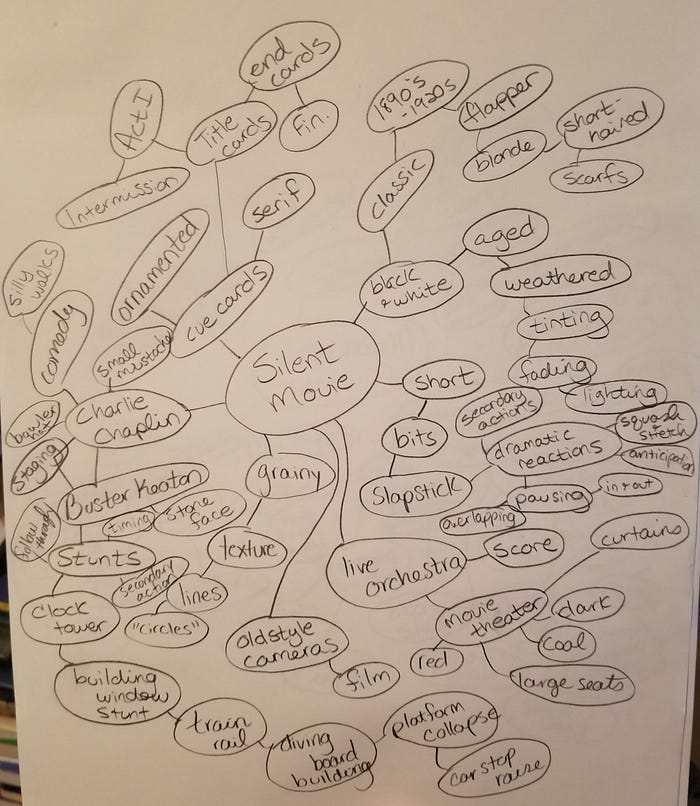 end
cards
Act I
Title
cards
Fin.
Intermission
1890's
-1920s
flapper
blonde
short-
haired
scarfs
classic
serif
ornamented
cue cards
black
+ white
aged
weathered
tinting
fading
lighting
silly
walks
comedy
small
mustache
Silent
Movie
short
bits
Slapstick
secondary
actions
dramatic
reactions
squash
& stretch
anticipation
pausing
in + out
overlapping
Charlie
Chaplin
bowler
hat
Staging
Buster Keaton
timing
Stone
face
follow
through
Stunts
secondary
action
grainy
texture
lines
"circles"
Clock
tower
live
orchestra
Score
curtains
movie
theater
dark
cool
large seats
red
old style
cameras
film
building
window
stunt
train
rail
diving
board
building
platform
collapse
car stop